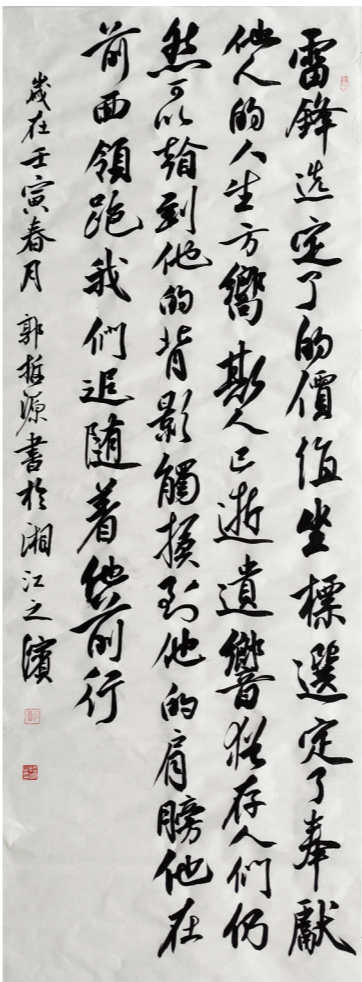 雷鋒选定了的價值坐標選定了奉獻
他人的人生方嚮斯人已逝遺響猶存人們仍
然可以到他的背影觸摸到他的肩膀他在
前面領跑我們追随着他前行
歲在壬寅春月 郭源書於湘江之濱